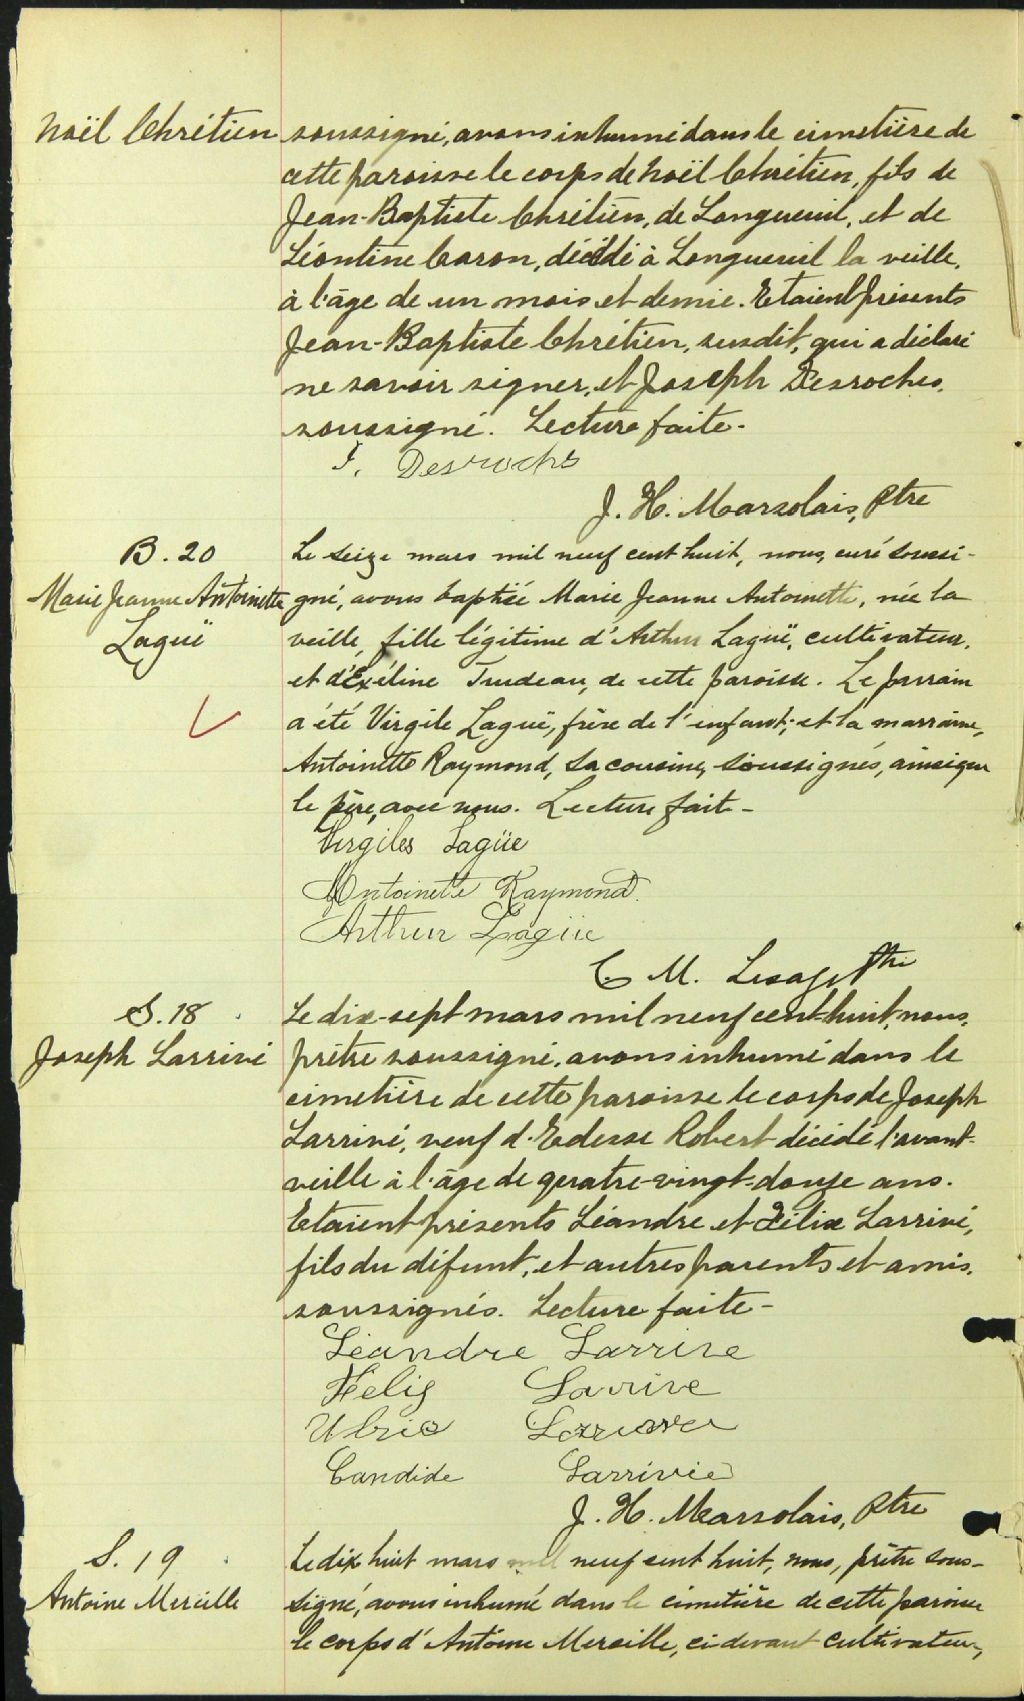 Noël Chrétien
soussigné, avons inhumé dans le cimetière de
cette paroisse le corps de Noël Chrétien, fils de
Jean-Baptiste Chrétien, de Longueuil, et de
Léontine Caron, décédé à Longueuil la veille,
à l'âge de un mois et demie. Etaient présents
Jean-Baptiste Chrétien, susdit, qui a déclaré
ne savoir signer, et Joseph Desroches,
soussigné. Lecture faite.
J. Desrochs
J. H. Marsolais, Ptre
B. 20
Marie Jeanne Antoinette
Laguë
Le seize mars mil neuf cent huit, nous, curé soussi-
gné, avons baptisé Marie Jeanne Antoinette, née la
veille, fille légitime d'Arthur Laguë, cultivateur,
et d'Exéline Trudeau, de cette paroisse. Le parrain
a été Virgile Laguë, frère de l'enfant; et la marraine,
Antoinette Raymond, sa cousine, soussignés, ainsi que
le père, avec nous. Lecture faite -
Virgiles Lagüe
Antoinette Raymond.
Arthur Lagüe
C. M. Lesage Ptre
S. 18
Joseph Larrivé
Le dix-sept mars mil neuf cent-huit, nous,
prêtre soussigné, avons inhumé dans le
cimetière de cette paroisse le corps de Joseph
Larrivé, veuf d'Edesse Robert décédé l'avant-
veille à l'âge de quatre-vingt-douze ans.
Etaient présents Léandre et Félix Larrivé,
fils du défunt, et autres parents et amis,
soussignés. Lecture faite -
Léandre Larrive
Felix Larrive
Ulric
Candide Larrivée
J. H. Marsolais, Ptre
S. 19
Antoine Mercille
Le dix huit mars mil neuf cent huit, nous, prêtre sous-
signé, avons inhumé dans le cimetière de cette paroisse
le corps d'Antoine Mercille, ci-devant cultivateur,